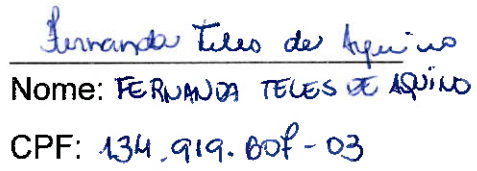 Fernanda Teles de Aquino
Nome: FERNANDA TELES DE AQUINO
CPF: 134.919.607-03